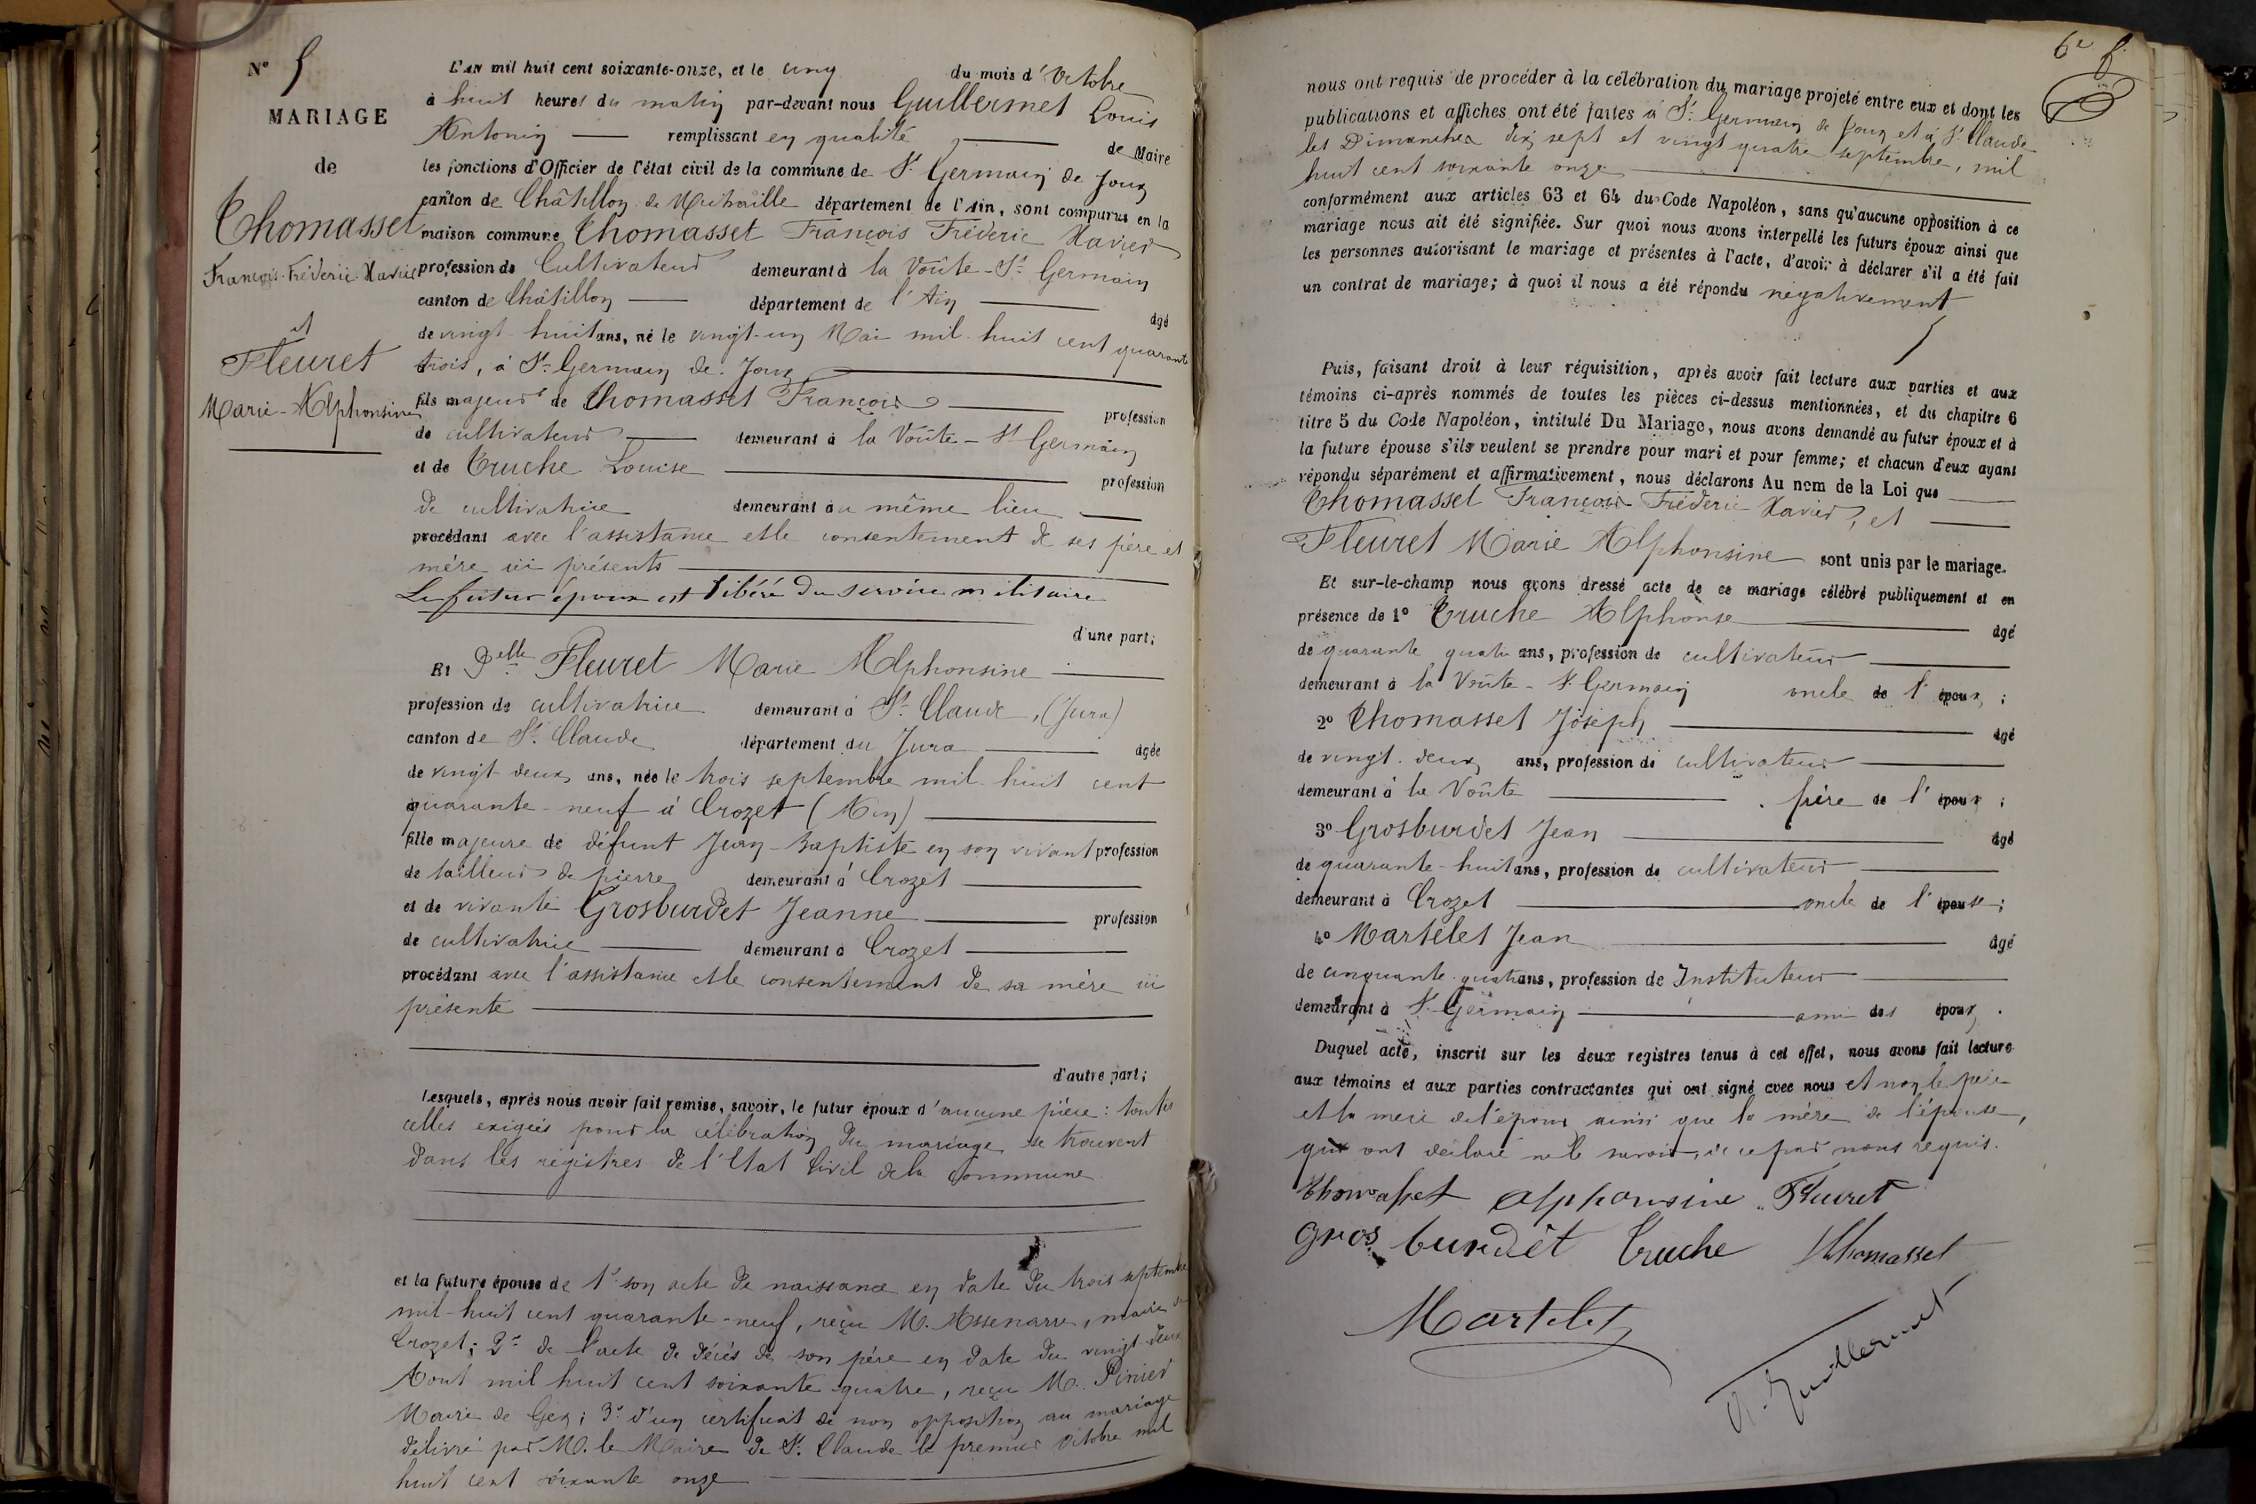 N° 5
MARIAGE
de
Thomasset
François Fréderic Xavier
et
Fleuret
Marie-Alphonsine
L'AN mil huit cent soixante-onze, et le cinq du mois d'Octobre
à huit heures du matin par-devant nous Guillermet Louis
Antonin remplissant en qualité de Maire
les fonctions d'Officier de l'état civil de la commune de St Germain de Joux
canton de Châtillon de Michaille département de l'Ain, sont comparus en la
maison commune Thomasset François Fréderic Xavier
profession de Cultivateur demeurant à la Voûte-St Germain
canton de Châtillon département de l'Ain âgé
de vingt-huit ans, né le vingt-un Mai mil huit cent quarante
trois, à St Germain de Joux
fils majeur de Thomasset François profession
de cultivateur demeurant à la Voûte-St Germain
et de Truche Louise profession
de cultivatrice demeurant au même lieu
procédant avec l'assistance et le consentement de ses père et
mère ici présents
Le futur époux est libéré du service militaire
d'une part;
Et Delle Fleuret Marie Alphonsine
profession de cultivatrice demeurant à St Claude, (Jura)
canton de St Claude département du Jura âgée
de vingt-deux ans, née le trois septembre mil huit cent
quarante-neuf à Crozet (Ain)
fille majeure de défunt Jean-Baptiste en son vivant profession
de tailleur de pierre demeurant à Crozet
et de vivante Grosburdet Jeanne profession
de cultivatrice demeurant à Crozet
procédant avec l'assistance et le consentement de sa mère ici
présente
d'autre part;
Lesquels, après nous avoir fait remise, savoir, le futur époux d'aucune pièce: toutes
celles exigées pour la célébration du mariage se trouvent
dans les régistres de l'Etat Civil de la Commune
et la future épouse de 1° son acte de naissance en date du trois septembre
mil-huit cent quarante-neuf, reçu M. Assenarre, maire de
Crozet; 2° de l'acte de décès de son père en date du vingt-deux
Aout mil huit cent soixante-quatre, reçu M. Pinier
Maire de Gex; 3° d'un certificat de non opposition au mariage
délivré par M. le Maire de St Claude le premier Octobre mil
huit cent soixante onze
6e f.
nous ont requis de procéder à la célébration du mariage projeté entre eux et dont les
publications et affiches ont été faites à St Germain de Joux et à St Claude
les Dimanches dix sept et vingt quatre septembre, mil
huit cent soixante onze
conformément aux articles 63 et 64 du Code Napoléon, sans qu'aucune opposition à ce
mariage nous ait été signifiée. Sur quoi nous avons interpellé les futurs époux ainsi que
les personnes autorisant le mariage et présentes à l'acte, d'avoir à déclarer s'il a été fait
un contrat de mariage; à quoi il nous a été répondu négativement
Puis, faisant droit à leur réquisition, après avoir fait lecture aux parties et aux
témoins ci-après nommés de toutes les pièces ci-dessus mentionnées, et du chapitre 6
titre 5 du Code Napoléon, intitulé Du Mariage, nous avons demandé au futur époux et à
la future épouse s'ils veulent se prendre pour mari et pour femme; et chacun d'eux ayant
répondu séparément et affirmativement, nous déclarons Au nom de la Loi que
Thomasset François Fréderic Xavier, et
Fleuret Marie Alphonsine sont unis par le mariage.
Et sur-le-champ nous avons dressé acte de ce mariage célébré publiquement et en
présence de 1° Truche Alphonse âgé
de quarante quatre ans, profession de cultivateur
demeurant à la Voûte-St Germain oncle de l'époux;
2° Thomasset Joseph âgé
de vingt-deux ans, profession de cultivateur
demeurant à la Voûte frère de l'époux;
3° Grosburdet Jean âgé
de quarante-huit ans, profession de cultivateur
demeurant à Crozet oncle de l'épouse;
4° Martelet Jean âgé
de cinquante-quatre ans, profession de Instituteur
demeurant à St Germain ami des époux.
Duquel acte, inscrit sur les deux registres tenus à cet effet, nous avons fait lecture
aux témoins et aux parties contractantes qui ont signé avec nous et non le père
et la mère de l'époux ainsi que la mère de l'épouse,
qui ont déclaré ne le savoir, de ce par nous requis.
Thomasset Alphonsine Fleuret
Gros burdet Truche Thomasset
Martelet
A. Guillermet